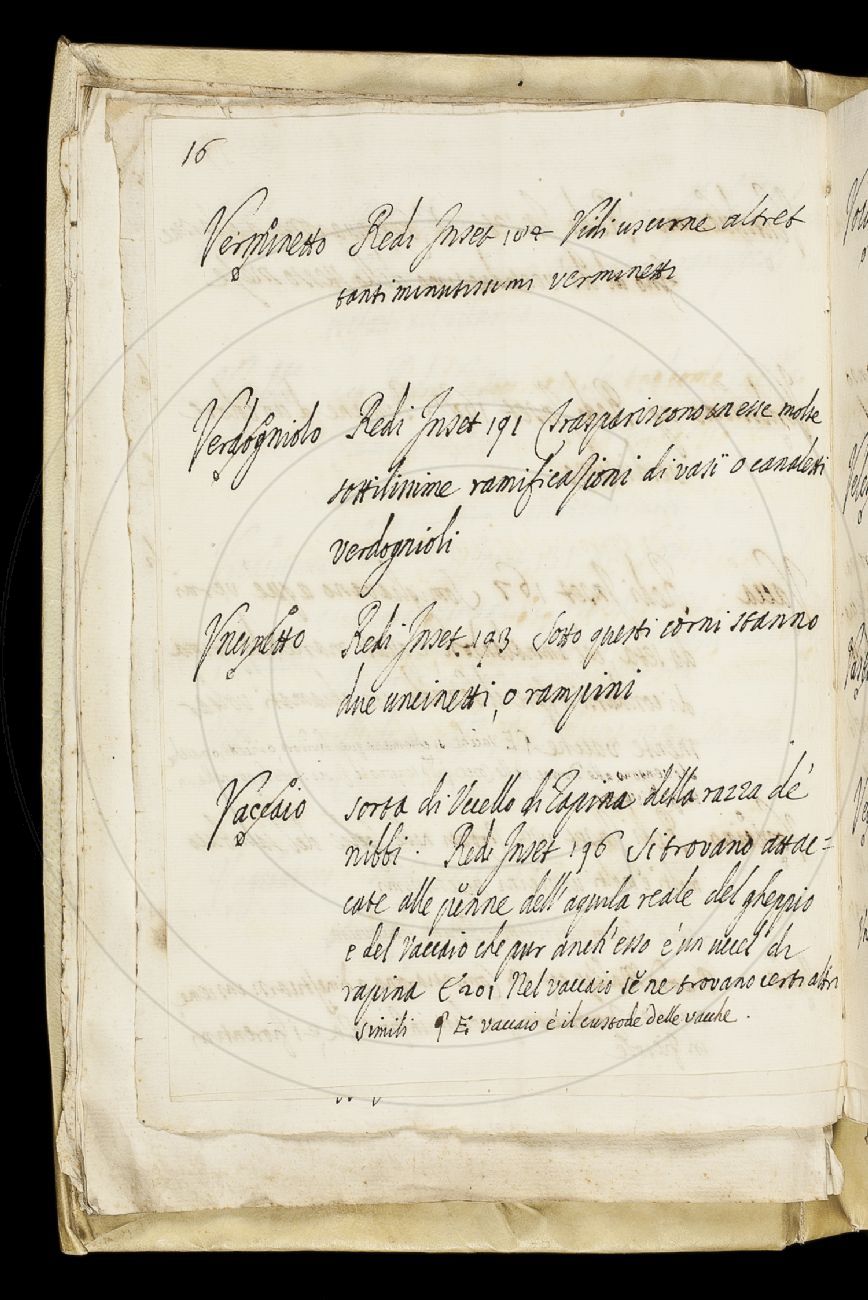 16
Verminetto Redi Inset 104 Vidi uscirne altret
tanti minutissimi verminetti
Verdogniolo Redi Inset 191 Traspariscono in esse molte
sottilissime ramificazioni di vasi o canaletti
verdognioli
Vncinetto Redi Inset. 193 Sotto questi corni stanno
due uncinetti, o rampini
Vaccaio sorta di Vccello di Rapina della razza de'
nibbi. Redi Inset 196 Si trovano attac=
cate alle penne dell'aquila reale del gheppio
e del Vaccaio che pur anch'esso é un uccel di
rapina E 201 Nel vaccaio se ne trovano certi altri
simili E vaccaio è il custode delle vacche.